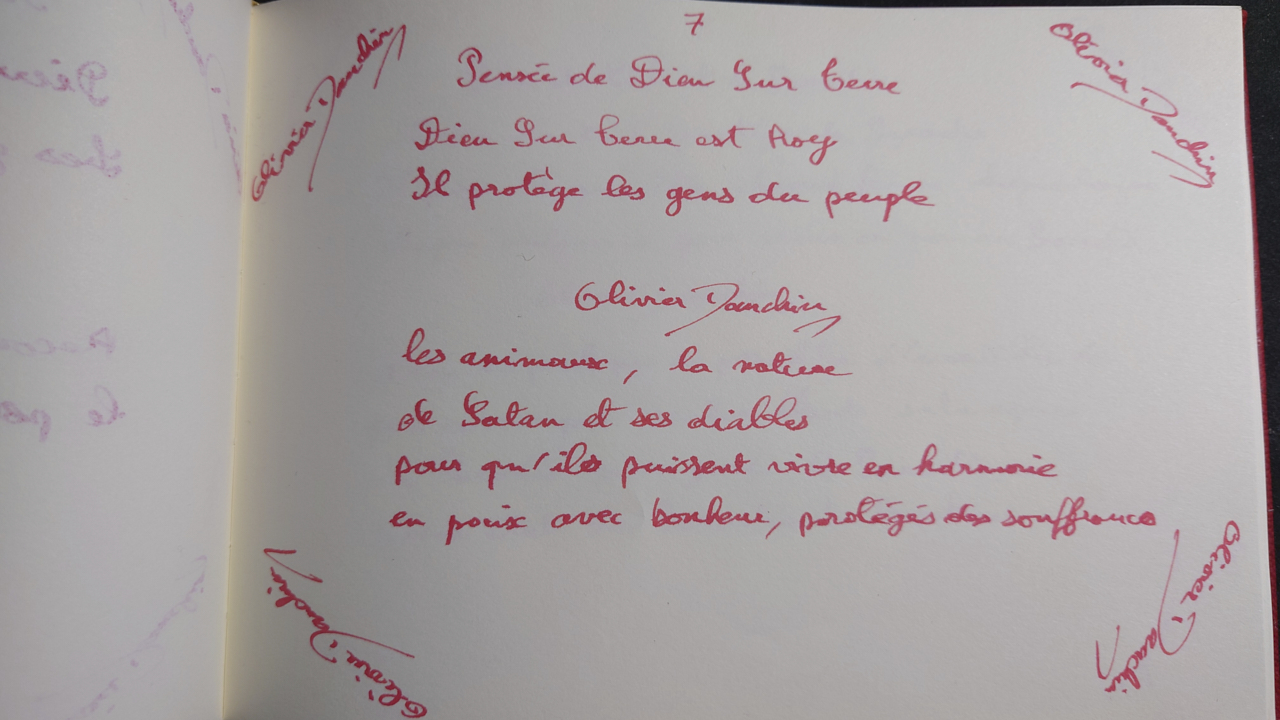 7
Pensée de Dieu Sur terre
Dieu Sur terre est Roy
Il protège les gens du peuple
Olivier Dauchin
les animaux, la nature
de Satan et ses diables
pour qu'ils puissent vivre en harmonie
en paix avec bonheur, protégés des souffrance
Olivier Dauchin
Olivier Dauchin
Olivier Dauchin
Olivier Dauchin